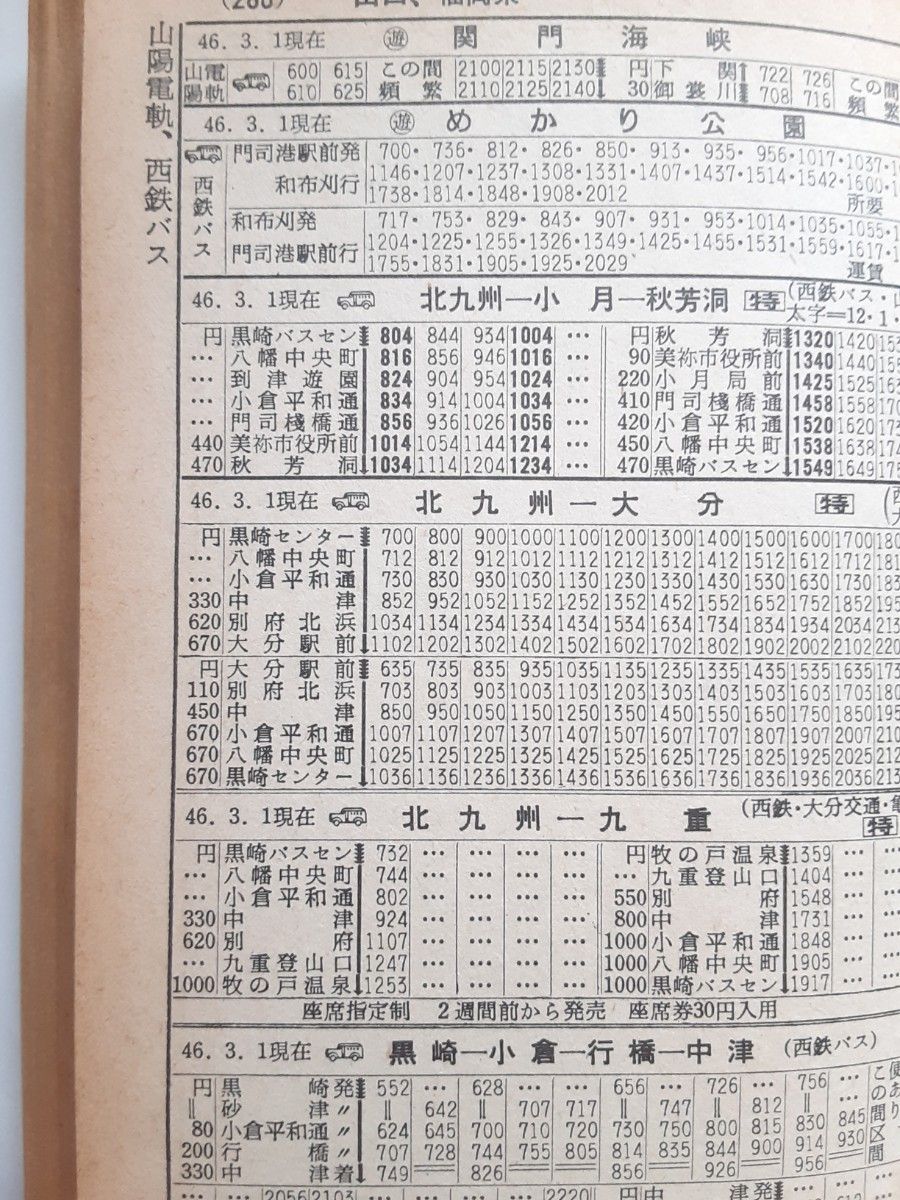 山陽電軌、西鉄バス
46. 3. 1現在 遊 関門海峡
山陽電軌 600 615 この間 2100 2115 2130 円 下関 722 726 この間
610 625 頻繁 2110 2125 2140 30 御裳川 708 716 頻繁
46. 3. 1現在 遊 めかり公園
西鉄バス
門司港駅前発 700・736・812・826・850・913・935・956・1017・1037・
和布刈行 1146・1207・1237・1308・1331・1407・1437・1514・1542・1600・
1738・1814・1848・1908・2012 所要
和布刈発 717・753・829・843・907・931・953・1014・1035・1055・
門司港駅前行 1204・1225・1255・1326・1349・1425・1455・1531・1559・1617・
1755・1831・1905・1925・2029 運賃
46. 3. 1現在 北九州―小月―秋芳洞 特 (西鉄バス・
太字=12・1・
円 黒崎バスセン 804 844 934 1004 … 円 秋芳洞 1320 1420
… 八幡中央町 816 856 946 1016 … 90 美祢市役所前 1340 1440
… 到津遊園 824 904 954 1024 … 220 小月局前 1425 1525
… 小倉平和通 834 914 1004 1034 … 410 門司棧橋通 1458 1558
… 門司棧橋通 856 936 1026 1056 … 420 小倉平和通 1520 1620
440 美祢市役所前 1014 1054 1144 1214 … 450 八幡中央町 1538 1638
470 秋芳洞 1034 1114 1204 1234 … 470 黒崎バスセン 1549 1649
46. 3. 1現在 北九州―大分 特
円 黒崎センター 700 800 900 1000 1100 1200 1300 1400 1500 1600 1700
… 八幡中央町 712 812 912 1012 1112 1212 1312 1412 1512 1612 1712
… 小倉平和通 730 830 930 1030 1130 1230 1330 1430 1530 1630 1730
330 中津 852 952 1052 1152 1252 1352 1452 1552 1652 1752 1852
620 別府北浜 1034 1134 1234 1334 1434 1534 1634 1734 1834 1934 2034
670 大分駅前 1102 1202 1302 1402 1502 1602 1702 1802 1902 2002 2102
円 大分駅前 635 735 835 935 1035 1135 1235 1335 1435 1535 1635
110 別府北浜 703 803 903 1003 1103 1203 1303 1403 1503 1603 1703
450 中津 850 950 1050 1150 1250 1350 1450 1550 1650 1750 1850
670 小倉平和通 1007 1107 1207 1307 1407 1507 1607 1707 1807 1907 2007
670 八幡中央町 1025 1125 1225 1325 1425 1525 1625 1725 1825 1925 2025
670 黒崎センター 1036 1136 1236 1336 1436 1536 1636 1736 1836 1936 2036
46. 3. 1現在 北九州―九重 (西鉄・大分交通・
特
円 黒崎バスセン 732 … … … … 円 牧の戸温泉 1359 … …
… 八幡中央町 744 … … … … … 九重登山口 1404 … …
… 小倉平和通 802 … … … … 550 別府 1548 … …
330 中津 924 … … … … 800 中津 1731 … …
620 別府 1107 … … … … 1000 小倉平和通 1848 … …
… 九重登山口 1247 … … … … 1000 八幡中央町 1905 … …
1000 牧の戸温泉 1253 … … … … 1000 黒崎バスセン 1917 … …
座席指定制 2週間前から発売 座席券30円入用
46. 3. 1現在 黒崎―小倉―行橋―中津 (西鉄バス)
円 黒崎発 552 … 628 … … 656 … 726 … 756 …
〃 砂津〃 ‖ 642 ‖ 707 717 ‖ 747 ‖ 812 ‖ …
80 小倉平和通〃 624 645 700 710 720 730 750 800 815 830 845
200 行橋〃 707 728 744 755 805 814 835 844 900 914 930
330 中津着 749 826 856 926 956
この間区間
… … 2056 2103 … … … 2220 円 中津発